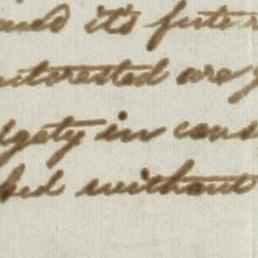 and it's futu
nterested are
dgety in cons
ked without